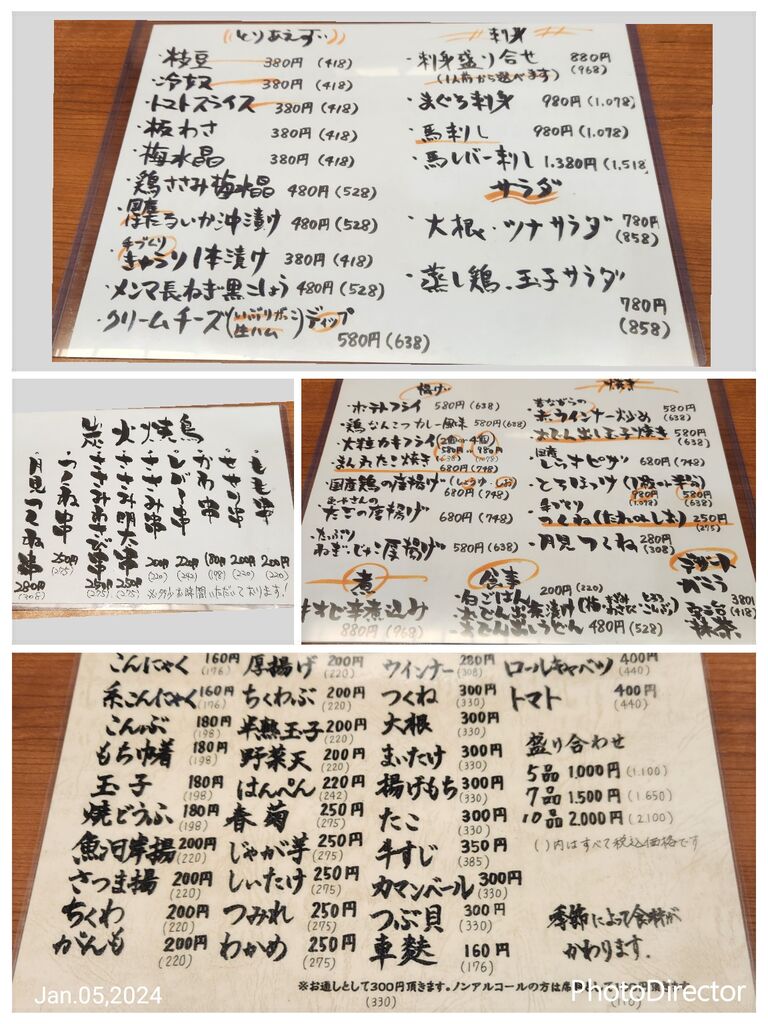 とりあえず
・枝豆 380円(418)
・冷奴 380円(418)
・トマトスライス 380円(418)
・板わさ 380円(418)
・梅水晶 380円(418)
・鶏ささみ梅水晶 480円(528)
・国産
ほたるいか沖漬け 480円(528)
手づくり
・きゅうり1本漬け 380円(418)
・メンマ長ねぎ黒こしょう 480円(528)
・クリームチーズ(いぶりがっこ 生ハム)ディップ
580円(638)
刺身
・刺身盛り合せ 880円
(1人前から選べます) (968)
・まぐろ刺身 980円(1.078)
・馬刺し 980円(1.078)
・馬レバー刺し 1.380円(1.518
サラダ
・大根・ツナサラダ 780円
(858)
・蒸し鶏、玉子サラダ
780円
(858)
炭火焼鳥
・もも串 200円(220)
・せせり串 200円(220)
・かわ串 180円(198)
・レバー串 220円(242)
・ささみ串 200円(220)
・ささみ明太串 250円(275)
・ささみわさび串 250円(275)
・つくね串 250円(275)
・月見つくね串 280円(308)
※少々お時間いただいております!
揚げ
・ポテトフライ 580円(638)
・鶏なんこつカレー風味 580円(638)
・大粒カキフライ(2個or4個)
580円 or 980円
(638) (1078)
・まんまたこ焼き
680円(748)
・国産鶏の唐揚げ(しょうゆ・しお)
680円(748)
・たこの唐揚げ 680円(748)
・たっぷり
ねぎ・じゃこ厚揚げ 580円(638)
焼き
・昔ながらの
赤ウインナー炒め 580円
(638)
・おでん出し玉子焼き 580円
(638)
・国産
しらすピザ 680円(748)
・とろほっけ(1枚or半身)
980円 580円
(1.078) (638)
・手づくり
つくね(たれorしお) 250円
(275)
・月見つくね 280円
(308)
煮
牛すじ辛煮込み
880円(968)
食事
・白ごはん 200円(220)
・おでん出し茶漬け(梅・わさび・こんぶ)
・おでん出しうどん 480円(528)
デザート
がこう
宮古
抹茶
380円
(418)
こんにゃく 160円(176)
糸こんにゃく 160円(176)
こんぶ 180円(198)
もち巾着 180円(198)
玉子 180円(198)
焼どうふ 180円(198)
魚河岸揚 200円(220)
さつま揚 200円(220)
ちくわ 200円(220)
がんも 200円(220)
厚揚げ 200円(220)
ちくわぶ 200円(220)
半熟玉子 200円(220)
野菜天 200円(220)
はんぺん 220円(242)
春菊 250円(275)
じゃが芋 250円(275)
しいたけ 250円(275)
つみれ 250円(275)
わかめ 250円(275)
ウインナー 280円(308)
つくね 300円(330)
大根 300円(330)
まいたけ 300円(330)
揚げもち 300円(330)
たこ 300円(330)
牛すじ 350円(385)
カマンベール 300円(330)
つぶ貝 300円(330)
車麩 160円(176)
ロールキャベツ 400円(440)
トマト 400円(440)
盛り合わせ
5品 1,000円(1.100)
7品 1.500円(1.650)
10品 2.000円(2.100)
( )内はすべて税込価格です
季節によって食材が
かわります。
※お通しとして300円頂きます。ノンアルコールの方は席
(330)
Jan.05,2024
PhotoDirector